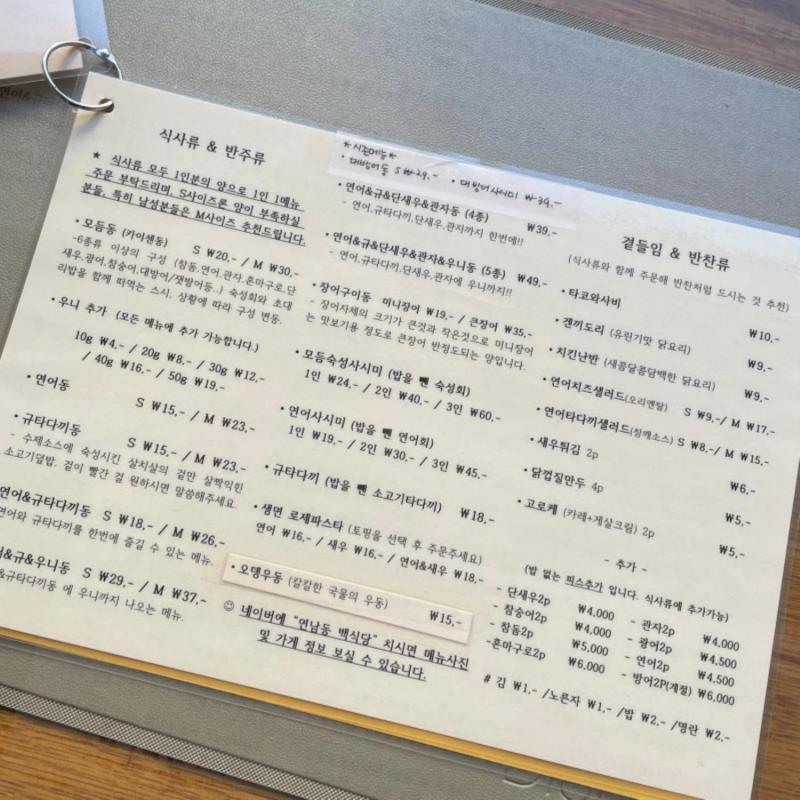 식사류 & 반주류
★ 식사류 모두 1인분의 양으로 1인 1메뉴
주문 부탁드리며, S사이즈론 양이 부족하실
분들, 특히 남성분들은 M사이즈 추천드립니다.
• 모듬동 (카이센동) S ₩20,- / M ₩30,-
-6종류 이상의 구성 (참돔,연어,관자,혼마구로,단
새우,광어,참숭어,대방어/잿방어등..) 숙성회와 초대
리밥을 함께 떠먹는 스시, 상황에 따라 구성 변동.
• 우니 추가 (모든 메뉴에 추가 가능합니다.)
10g ₩4,- / 20g ₩8,- / 30g ₩12,-
/ 40g ₩16,- / 50g ₩19,-
• 연어동 S ₩15,- / M ₩23,-
• 규타다끼동 S ₩15,- / M ₩23,-
- 수제소스에 숙성시킨 살치살의 겉만 살짝익힌
소고기덮밥. 겉이 빨간 걸 원하시면 말씀해주세요.
연어&규타다끼동 S ₩18,- / M ₩26,-
연어와 규타다끼를 한번에 즐길 수 있는 메뉴.
&규&우니동 S ₩29,- / M ₩37,-
&규타다끼동 에 우니까지 나오는 메뉴.
★시즌메뉴★
• 대방어동 S ₩29,- • 대방어사시미 ₩39,-
• 연어&규&단새우&관자동 (4종) ₩39,-
- 연어,규타다끼,단새우,관자까지 한번에!!
• 연어&규&단새우&관자&우니동 (5종) ₩49,-
- 연어,규타다끼,단새우,관자에 우니까지!!
• 장어구이동 미니장어 ₩19,- / 큰장어 ₩35,-
- 장어자체의 크기가 큰것과 작은것으로 미니장어
는 맛보기용 정도로 큰장어 반정도되는 양입니다.
• 모듬숙성사시미 (밥을 뺀 숙성회)
1인 ₩24,- / 2인 ₩40,- / 3인 ₩60,-
• 연어사시미 (밥을 뺀 연어회)
1인 ₩19,- / 2인 ₩30,- / 3인 ₩45,-
• 규타다끼 (밥을 뺀 소고기타다끼) ₩18,-
• 생면 로제파스타 (토핑을 선택 후 주문주세요)
연어 ₩16,- / 새우 ₩16,- / 연어&새우 ₩18,-
• 오뎅우동 (칼칼한 국물의 우동) ₩15,-
☺ 네이버에 "연남동 백식당" 치시면 메뉴사진
및 가게 정보 보실 수 있습니다.
곁들임 & 반찬류
(식사류와 함께 주문해 반찬처럼 드시는 것 추천)
• 타코와사비 ₩10,-
• 겐끼도리 (유린기맛 닭요리) ₩9,-
• 치킨난반 (새콤달콤담백한 닭요리) ₩9,-
• 연어치즈샐러드(오리엔탈) S ₩9,-/ M ₩17,-
• 연어타다끼샐러드(참깨소스) S ₩8,-/ M ₩15,-
• 새우튀김 2p ₩6,-
• 닭껍질만두 4p ₩5,-
• 고로케 (카레+게살크림) 2p ₩5,-
- 추가 -
(밥 없는 피스추가 입니다. 식사류에 추가가능)
- 단새우2p ₩4,000 - 관자2p ₩4,000
- 참숭어2p ₩4,000 - 광어2p ₩4,500
- 참돔2p ₩5,000 - 연어2p ₩4,500
-혼마구로2p ₩6,000 - 방어2P(계절) ₩6,000
# 김 ₩1,- /노른자 ₩1,- /밥 ₩2,- /명란 ₩2,-